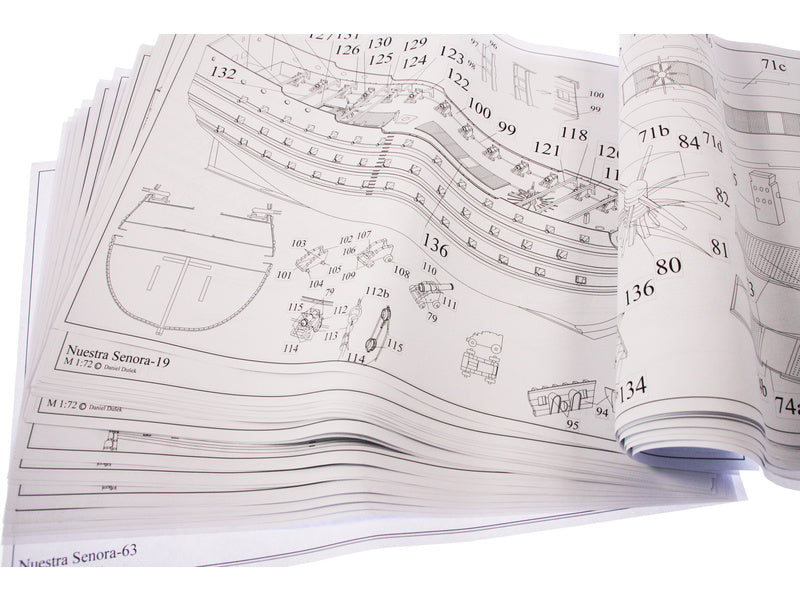 127 131 130 129 123
126 125 124 122
97 96
98
100
99
132
100 99
121 118 120
136
103 102 107
106
101 105 109 108
104
110
111
79
79
115 112 112b
113
114 114 115
94
95
71c
71b 84 71d
82
81
80
136
134
74a
Nuestra Senora-19
M 1:72 © Daniel Dušek
M 1:72 © Daniel Dušek
Nuestra Senora-63